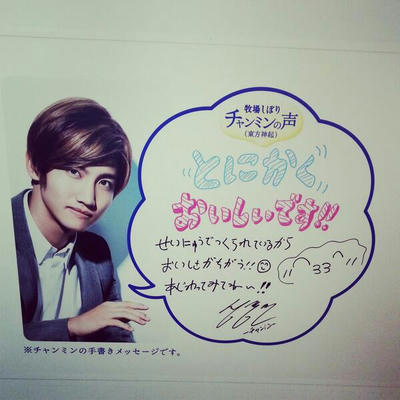 牧場しぼり
チャンミンの声
(東方神起)
とにかく
おいしいです!!
せいにゅうでつくられているから
おいしさがちがう!!
あじわってみてね〜!!
33
チャンミン
※チャンミンの手書きメッセージです。